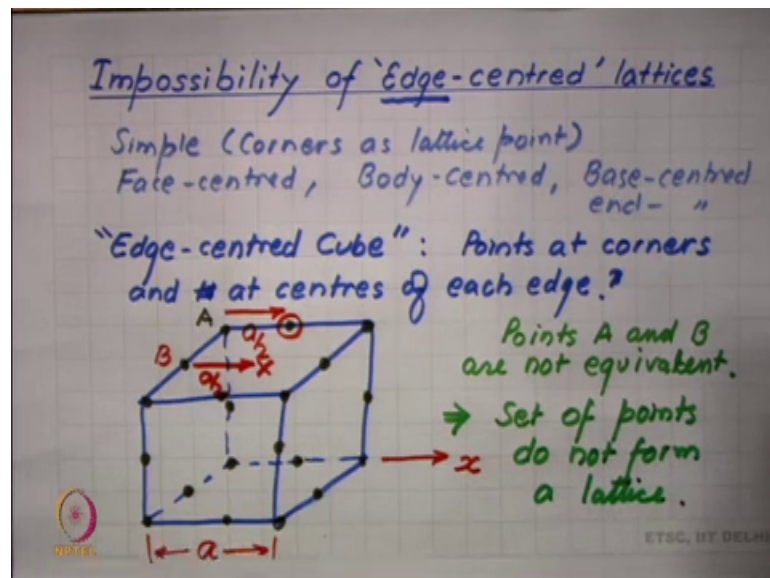 Impossibility of 'Edge-centred' lattices
Simple (Corners as lattice point)
Face-centred, Body-centred, Base-centred
end- "
"Edge-centred Cube": Points at corners
and at centres of each edge."
A
a/2
B
a/2
x
Points A and B
are not equivalent.
⇒ Set of points
do not form
a lattice.
x
a
NPTEL
ETSC, IIT DELHI